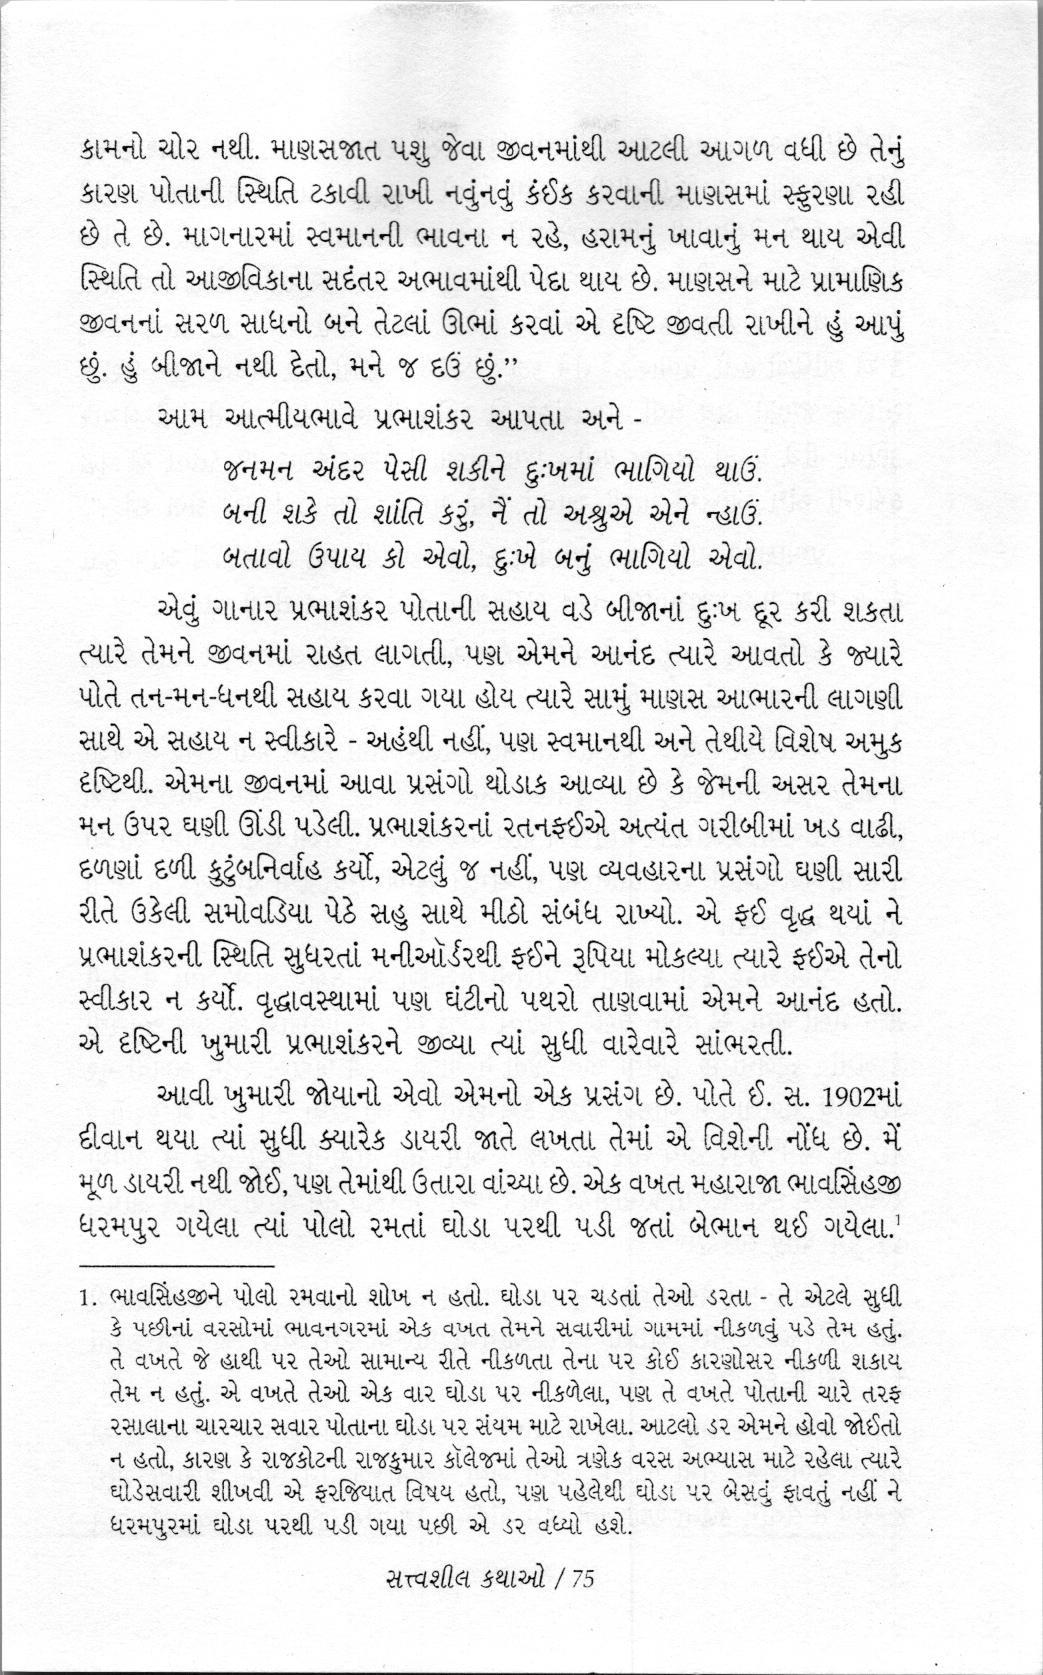 કામનો ચોર નથી. માણસજાત પશુ જેવા જીવનમાંથી આટલી આગળ વધી છે તેનું
કારણ પોતાની સ્થિતિ ટકાવી રાખી નવુંનવું કંઈક કરવાની માણસમાં સ્ફુરણા રહી
છે તે છે. માગનારમાં સ્વમાનની ભાવના ન રહે, હરામનું ખાવાનું મન થાય એવી
સ્થિતિ તો આજીવિકાના સદંતર અભાવમાંથી પેદા થાય છે. માણસને માટે પ્રામાણિક
જીવનનાં સરળ સાધનો બને તેટલાં ઊભાં કરવાં એ દૃષ્ટિ જીવતી રાખીને હું આપું
છું. હું બીજાને નથી દેતો, મને જ દઉં છું.”
આમ આત્મીયભાવે પ્રભાશંકર આપતા અને -
જનમન અંદર પેસી શકીને દુઃખમાં ભાગિયો થાઉં.
બની શકે તો શાંતિ કરું, નૈં તો અશ્રુએ એને ન્હાઉં.
બતાવો ઉપાય કો એવો, દુઃખે બનું ભાગિયો એવો.
એવું ગાનાર પ્રભાશંકર પોતાની સહાય વડે બીજાનાં દુઃખ દૂર કરી શકતા
ત્યારે તેમને જીવનમાં રાહત લાગતી, પણ એમને આનંદ ત્યારે આવતો કે જ્યારે
પોતે તન-મન-ધનથી સહાય કરવા ગયા હોય ત્યારે સામું માણસ આભારની લાગણી
સાથે એ સહાય ન સ્વીકારે - અહંથી નહીં, પણ સ્વમાનથી અને તેથીયે વિશેષ અમુક
દૃષ્ટિથી. એમના જીવનમાં આવા પ્રસંગો થોડાક આવ્યા છે કે જેમની અસર તેમના
મન ઉપર ઘણી ઊંડી પડેલી. પ્રભાશંકરનાં રતનફઈએ અત્યંત ગરીબીમાં ખડ વાઢી,
દળણાં દળી કુટુંબનિર્વાહ કર્યો, એટલું જ નહીં, પણ વ્યવહારના પ્રસંગો ઘણી સારી
રીતે ઉકેલી સમોવડિયા પેઠે સહુ સાથે મીઠો સંબંધ રાખ્યો. એ ફઈ વૃદ્ધ થયાં ને
પ્રભાશંકરની સ્થિતિ સુધરતાં મનીઑર્ડરથી ફઈને રૂપિયા મોકલ્યા ત્યારે ફઈએ તેનો
સ્વીકાર ન કર્યો. વૃદ્ધાવસ્થામાં પણ ઘંટીનો પથરો તાણવામાં એમને આનંદ હતો.
એ દૃષ્ટિની ખુમારી પ્રભાશંકરને જીવ્યા ત્યાં સુધી વારેવારે સાંભરતી.
આવી ખુમારી જોયાનો એવો એમનો એક પ્રસંગ છે. પોતે ઈ. સ. 1902માં
દીવાન થયા ત્યાં સુધી ક્યારેક ડાયરી જાતે લખતા તેમાં એ વિશેની નોંધ છે. મેં
મૂળ ડાયરી નથી જોઈ, પણ તેમાંથી ઉતારા વાંચ્યા છે. એક વખત મહારાજા ભાવસિંહજી
ધરમપુર ગયેલા ત્યાં પોલો રમતાં ઘોડા પરથી પડી જતાં બેભાન થઈ ગયેલા.¹
1. ભાવસિંહજીને પોલો રમવાનો શોખ ન હતો. ઘોડા પર ચડતાં તેઓ ડરતા - તે એટલે સુધી
કે પછીનાં વરસોમાં ભાવનગરમાં એક વખત તેમને સવારીમાં ગામમાં નીકળવું પડે તેમ હતું.
તે વખતે જે હાથી પર તેઓ સામાન્ય રીતે નીકળતા તેના પર કોઈ કારણોસર નીકળી શકાય
તેમ ન હતું. એ વખતે તેઓ એક વાર ઘોડા પર નીકળેલા, પણ તે વખતે પોતાની ચારે તરફ
રસાલાના ચારચાર સવાર પોતાના ઘોડા પર સંયમ માટે રાખેલા. આટલો ડર એમને હોવો જોઈતો
ન હતો, કારણ કે રાજકોટની રાજકુમાર કૉલેજમાં તેઓ ત્રણેક વરસ અભ્યાસ માટે રહેલા ત્યારે
ઘોડેસવારી શીખવી એ ફરજિયાત વિષય હતો, પણ પહેલેથી ઘોડા પર બેસવું ફાવતું નહીં ને
ધરમપુરમાં ઘોડા પરથી પડી ગયા પછી એ ડર વધ્યો હશે.
સત્ત્વશીલ કથાઓ / 75